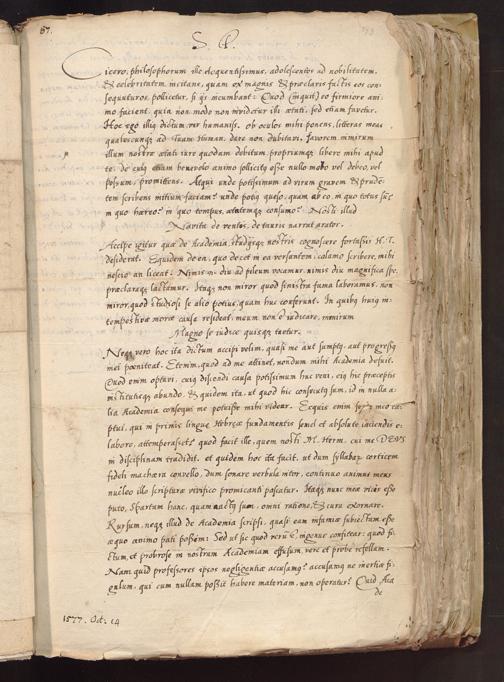 87.
S. P.
Cicero, philosophorum ille eloquentissimus, adolescentes ad nobilitatem,
& celebritatem incitans, quam ex magnis & præclaris factis eos con-
sequuturos, pollicetur, si iis incumbant: Quod (inquit) eo firmiore ani-
mo faciant, quia non modo non invidetur illi ætati, sed etiam favetur.
Hoc ego illiq dictum, ver humanissᵉ. ob oculos mihi ponens, litteras meas
qualescunqꝫ ad Tuam Human. dare non dubitavi, favorem nimirum
illum nostræ ætati iure quodam debitum, propriumqꝫ libere mihi apud
te, de cuiq etiam benevolo animo sollicitq esse nullo modo vel debeo, vel
possum, promittens. Atqui unde potissimum ad virum gravem & prudē-
tem scribens initium faciam? unde potiq quæso, quam ab eo, in quo totus su̅
in quo hæreo? in quo tempus, ætatemqꝫ consumo? Nosti illud
Navita de ventos, de tauris narrat arator.
Accipe igitur quæ de Academia, studijsqꝫ nostris cognoscere fortassis H. T.
desiderat. Equidem de ea, quo decet in ea versantem, calamo scribere, mihi
nescio an liceat: Nimis n. diu ad pileum vocamur, nimis diu magnifica spe,
præclaraqꝫ lactamur. Itaqꝫ non miror quod sinistra fama laboramus, non
miror, quod studiosi se alio potius, quam huc conferunt. In quibq huiq in-
tempestivæ moræ causa resideat, meum non est iudicare, nimirum
Magno se iudice quisqꝫ tuetur.
Neqꝫ vero hoc ita dictum accipi velim, quasi me aut sumptq, aut progressq
mei pœniteat. Etenim, quod ad me attinet, nondum mihi Academia defuit.
Quod enim optavi, cuiq discendi causa potissimum huc veni, eiq hic præceptis
institutisqꝫ abundo, & quidem ita, ut quod hic consecutq sum, id in nulla a-
lia Academia consequi me potuisse mihi videar. Ecquis enim meo ca-
ptui, qui in primis linguæ Hebrææ fundamentis semel et absolute iaciendis e-
laboro, attemperasset? quod facit ille, quem nosti M. Herm. cui me DEVS
in disciplinam tradidit, et quidem hoc ita facit, ut dum syllabaꝝ corticem
fideli machæra convello, dum sonare verbula nitor, continuo animus meus
nucleo illo scripturæ vivifico promicanti pascatur. Itaqꝫ nunc meæ vicis esse
puto, Spartam hanc, quam nactq sum, omni ratione, & cura exornare.
Rursum, neqꝫ illud de Academia scripsi, quasi eam infamiæ subiectam esse
æquo animo pati possem: Sed ut sic quod reru̅ ē, ingenue confitear: quod fi-
ctum, et probrose in nostram Academiam effusum, vere et probe refellam.
Nam quid professores ipsos negligentiæ accusamq? accusamq ne inertiæ fi-
gulum, qui cum nullam possit habere materiam, non operatur? Quid Aca
de
1577. Oct. 14